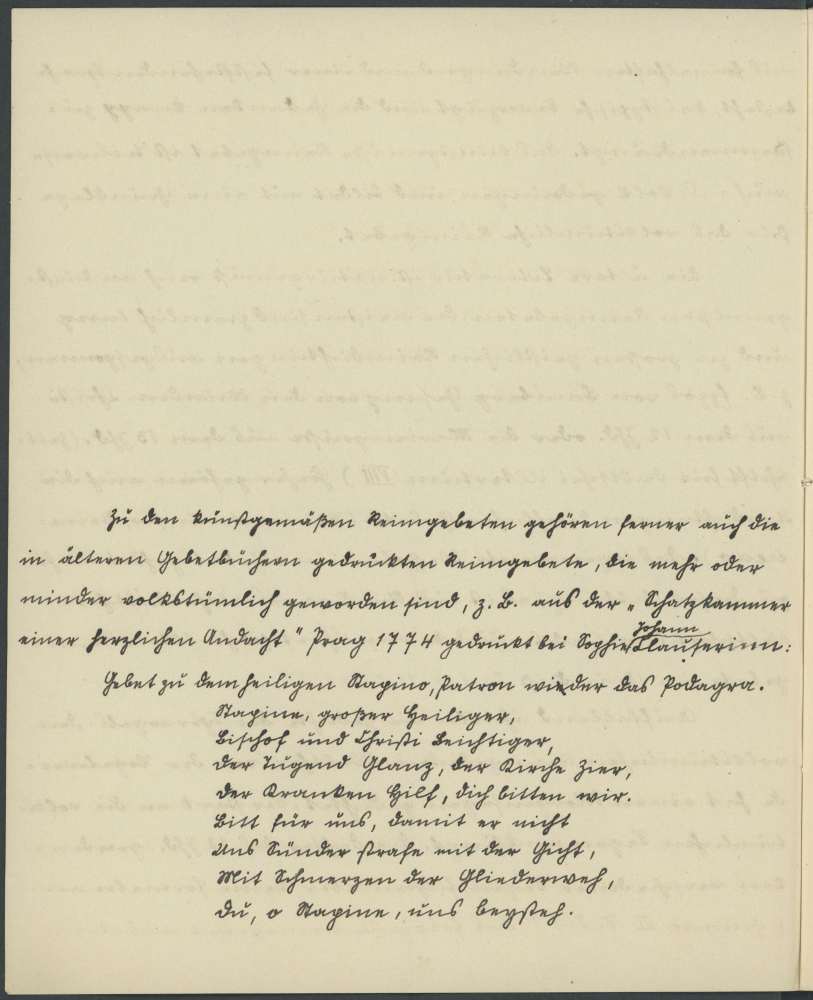 Zu den kunstgemäßen Reimgebeten gehören ferner auch die
in älteren Gebetbüchern gedruckten Reimgebete, die mehr oder
minder volkstümlich geworden sind, z. B. aus der „Schatzkammer
einer herzlichen Andacht" Prag 1774 gedruckt bei Sophie Johann Clauserinn:
Gebet zu dem heiligen Stapino, Patron wieder das Podagra.
Stapine, großer Heiliger,
Bischof und Christi Beichtiger,
Der Tugend Glanz, der Kirche Zier,
Der Kranken Hilf, dich bitten wir.
Bitt für uns, damit er nicht
Uns Sünder strafe mit der Gicht,
Mit Schmerzen der Gliederweh,
Du, o Stapine, uns beysteh.